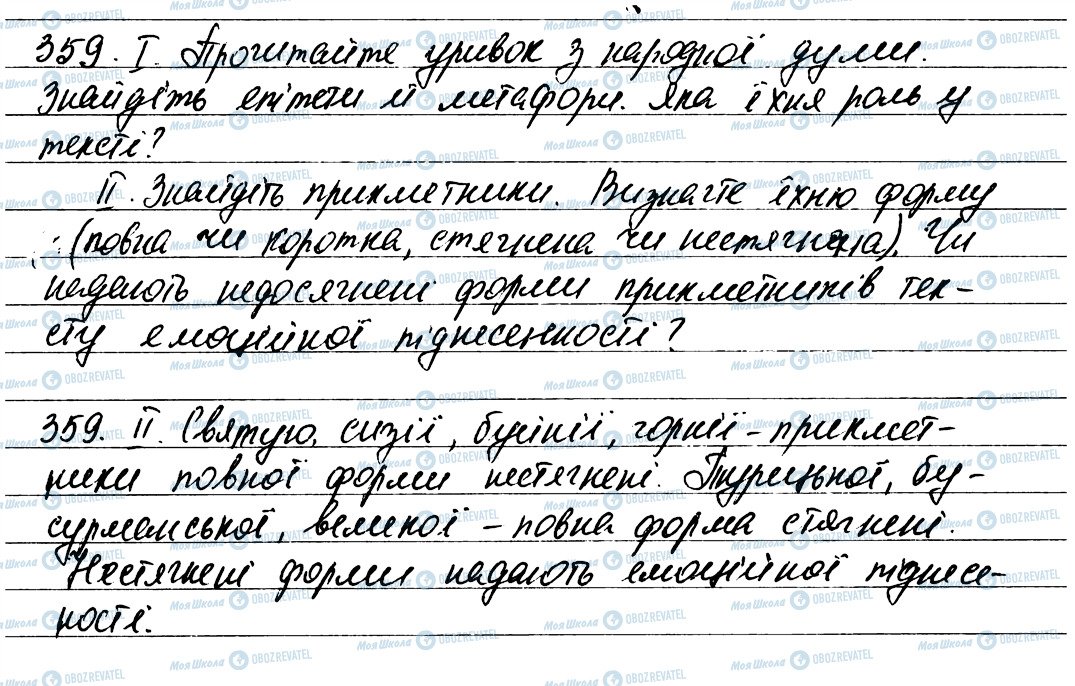 359. I. Прочитайте уривок з народної думи.
Знайдіть епітети й метафори. Яка їхня роль у
тексті?
II. Знайдіть прикметники. Визначте їхню форму
(повна чи коротка, стягнена чи нестягнена). Чи
надають недосягнені форми прикметників тек-
сту емоційної піднесенності?
359. II. Святую, сизії, буйнії, чорнії - прикмет-
ники повної форми нестягнені. Турицької, бу-
сурменської, великої - повна форма стягнені.
Нестягнені форми надають емоційної піднесе-
ності.